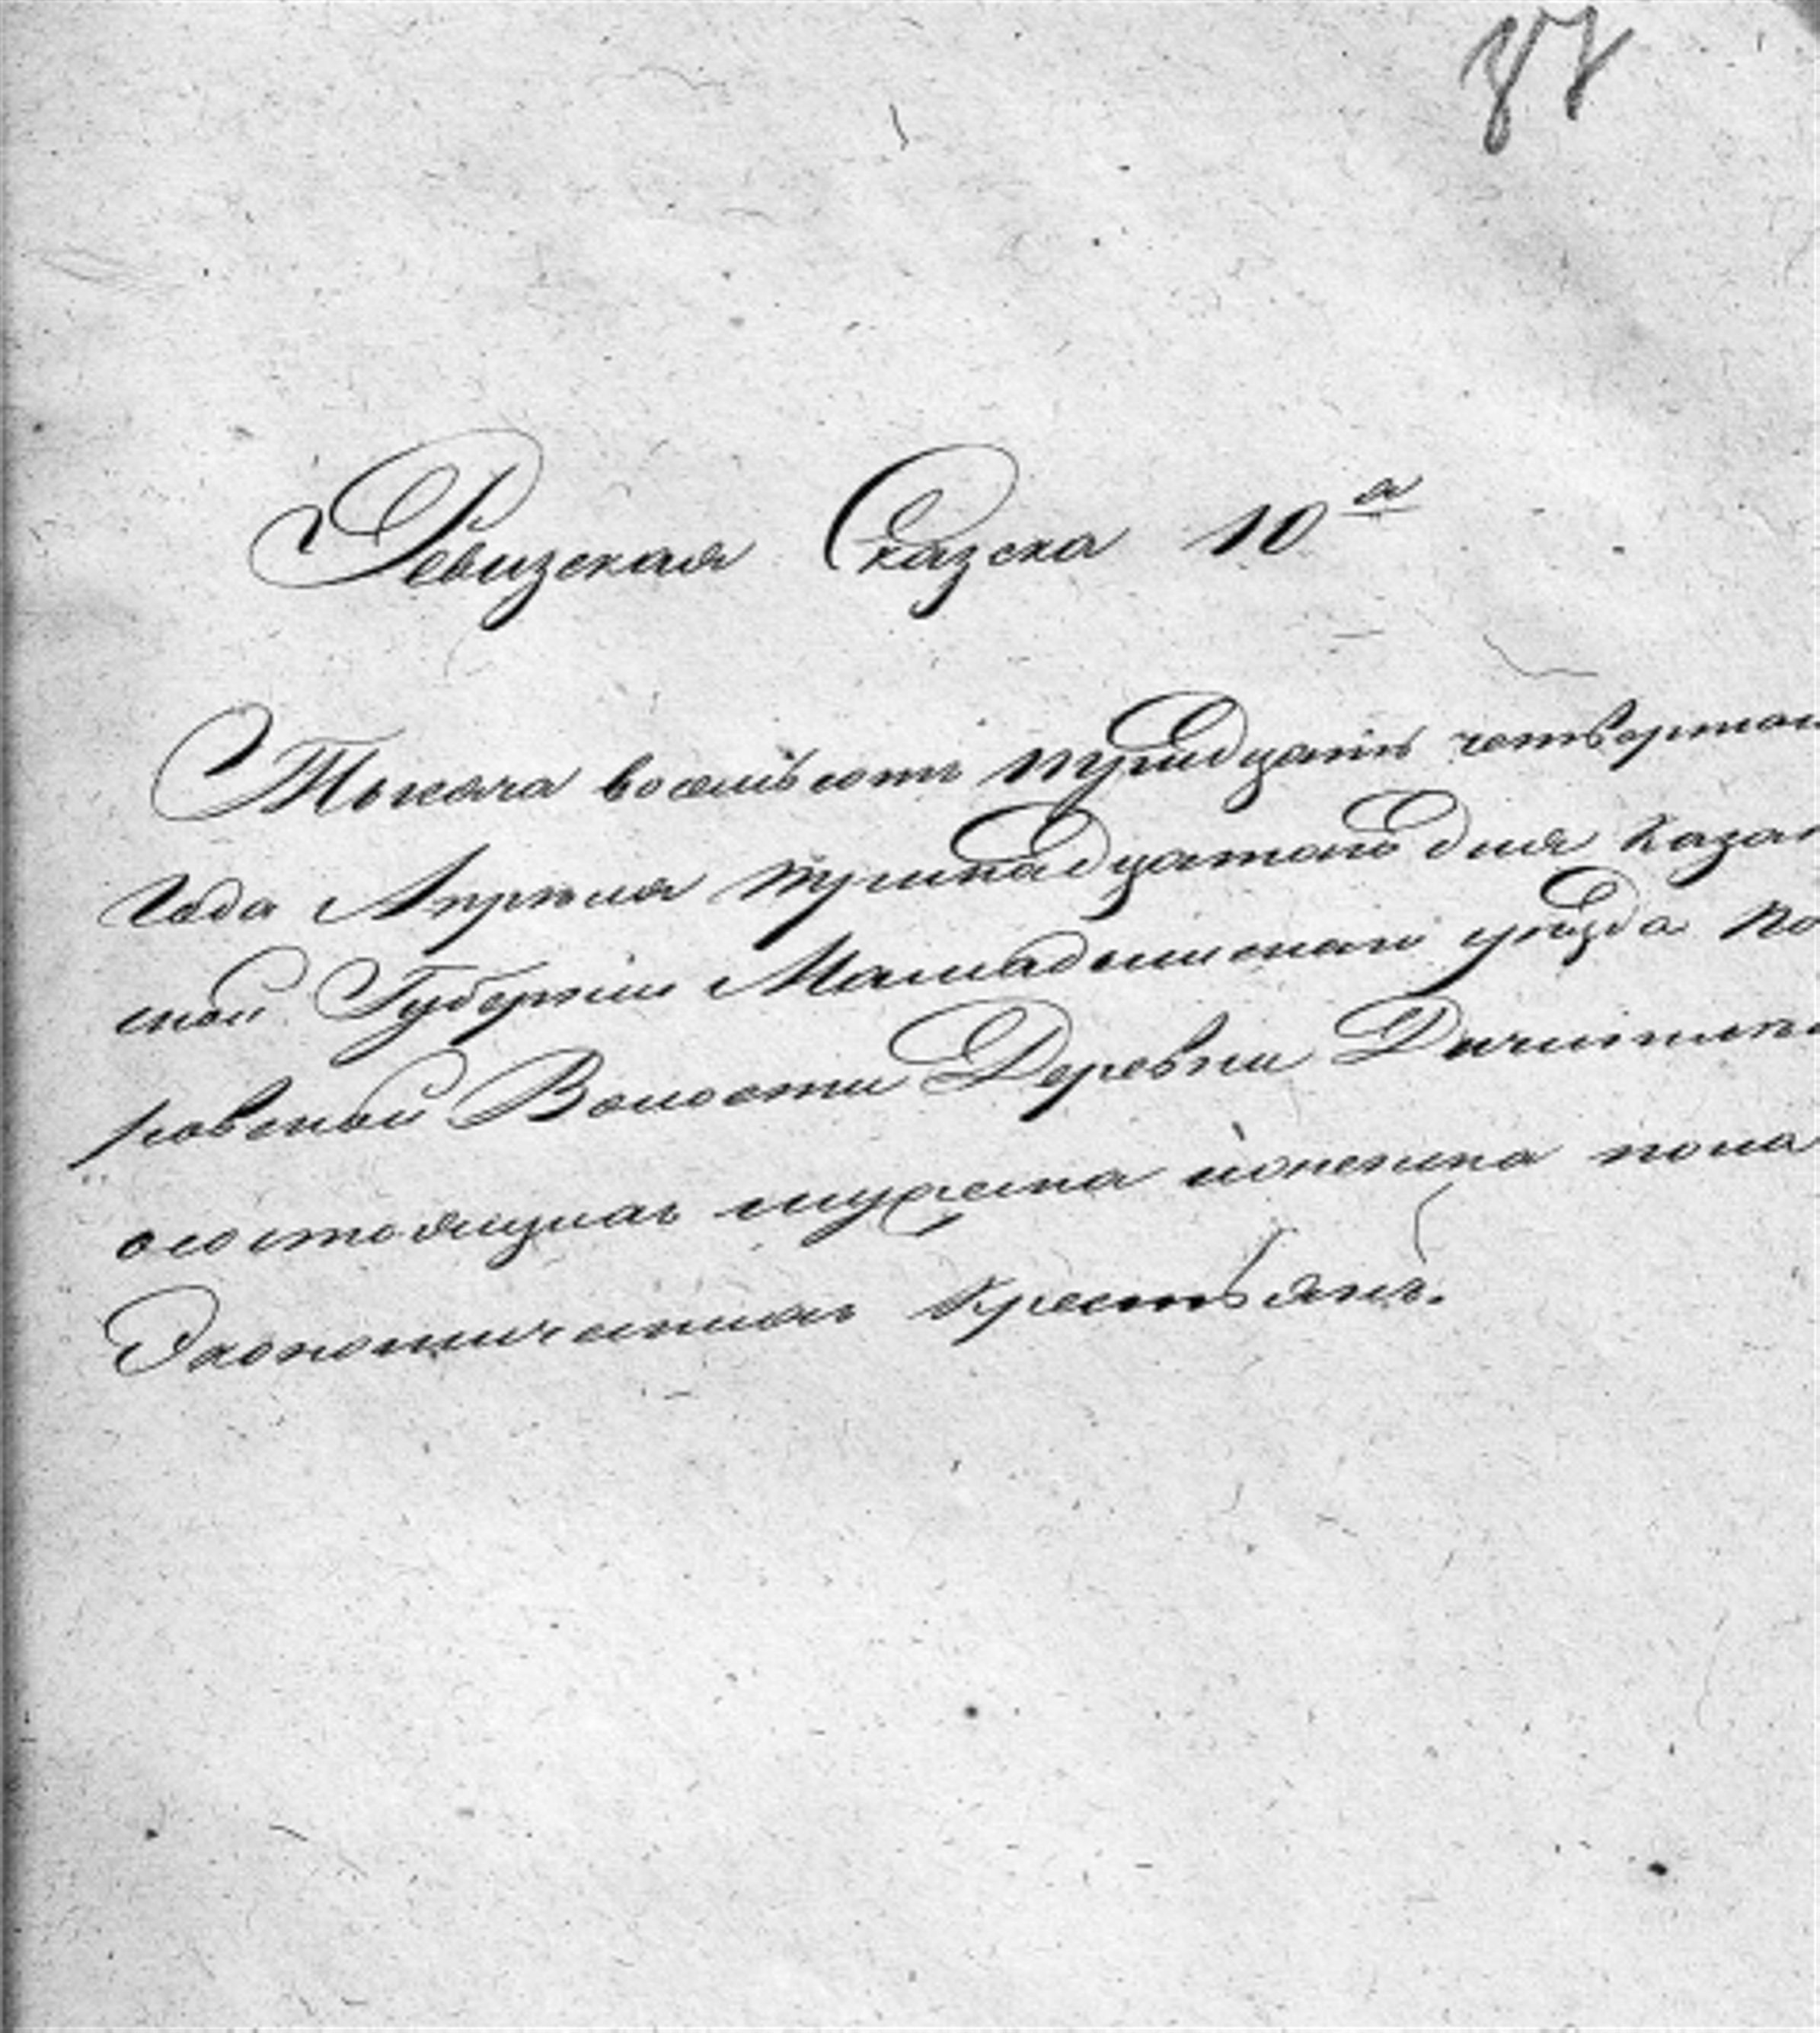 87
Ревизская Сказка 10а
Тысяча восемьсотъ тридцать четвертаго
Года Апреля тринадцатаго дня Казан
ской Губерніи Мамадышскаго уѣзда Ко
ровской Волости Деревни
о состоящихъ мужеска и женска пола
Экономическихъ крестьянъ.